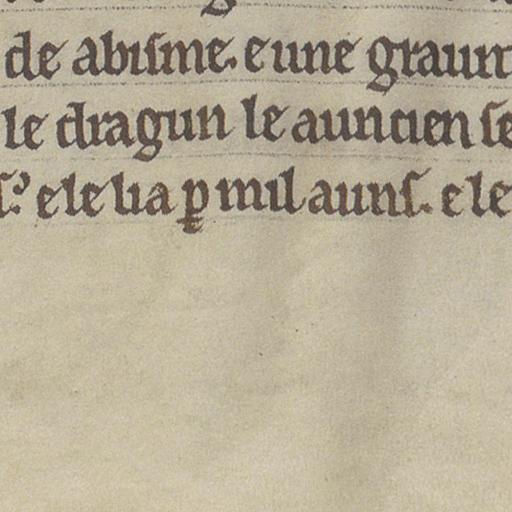 de abisme. e une graunt
le dragun le auncien se
s. e le lia ꝑ mil auns. e le